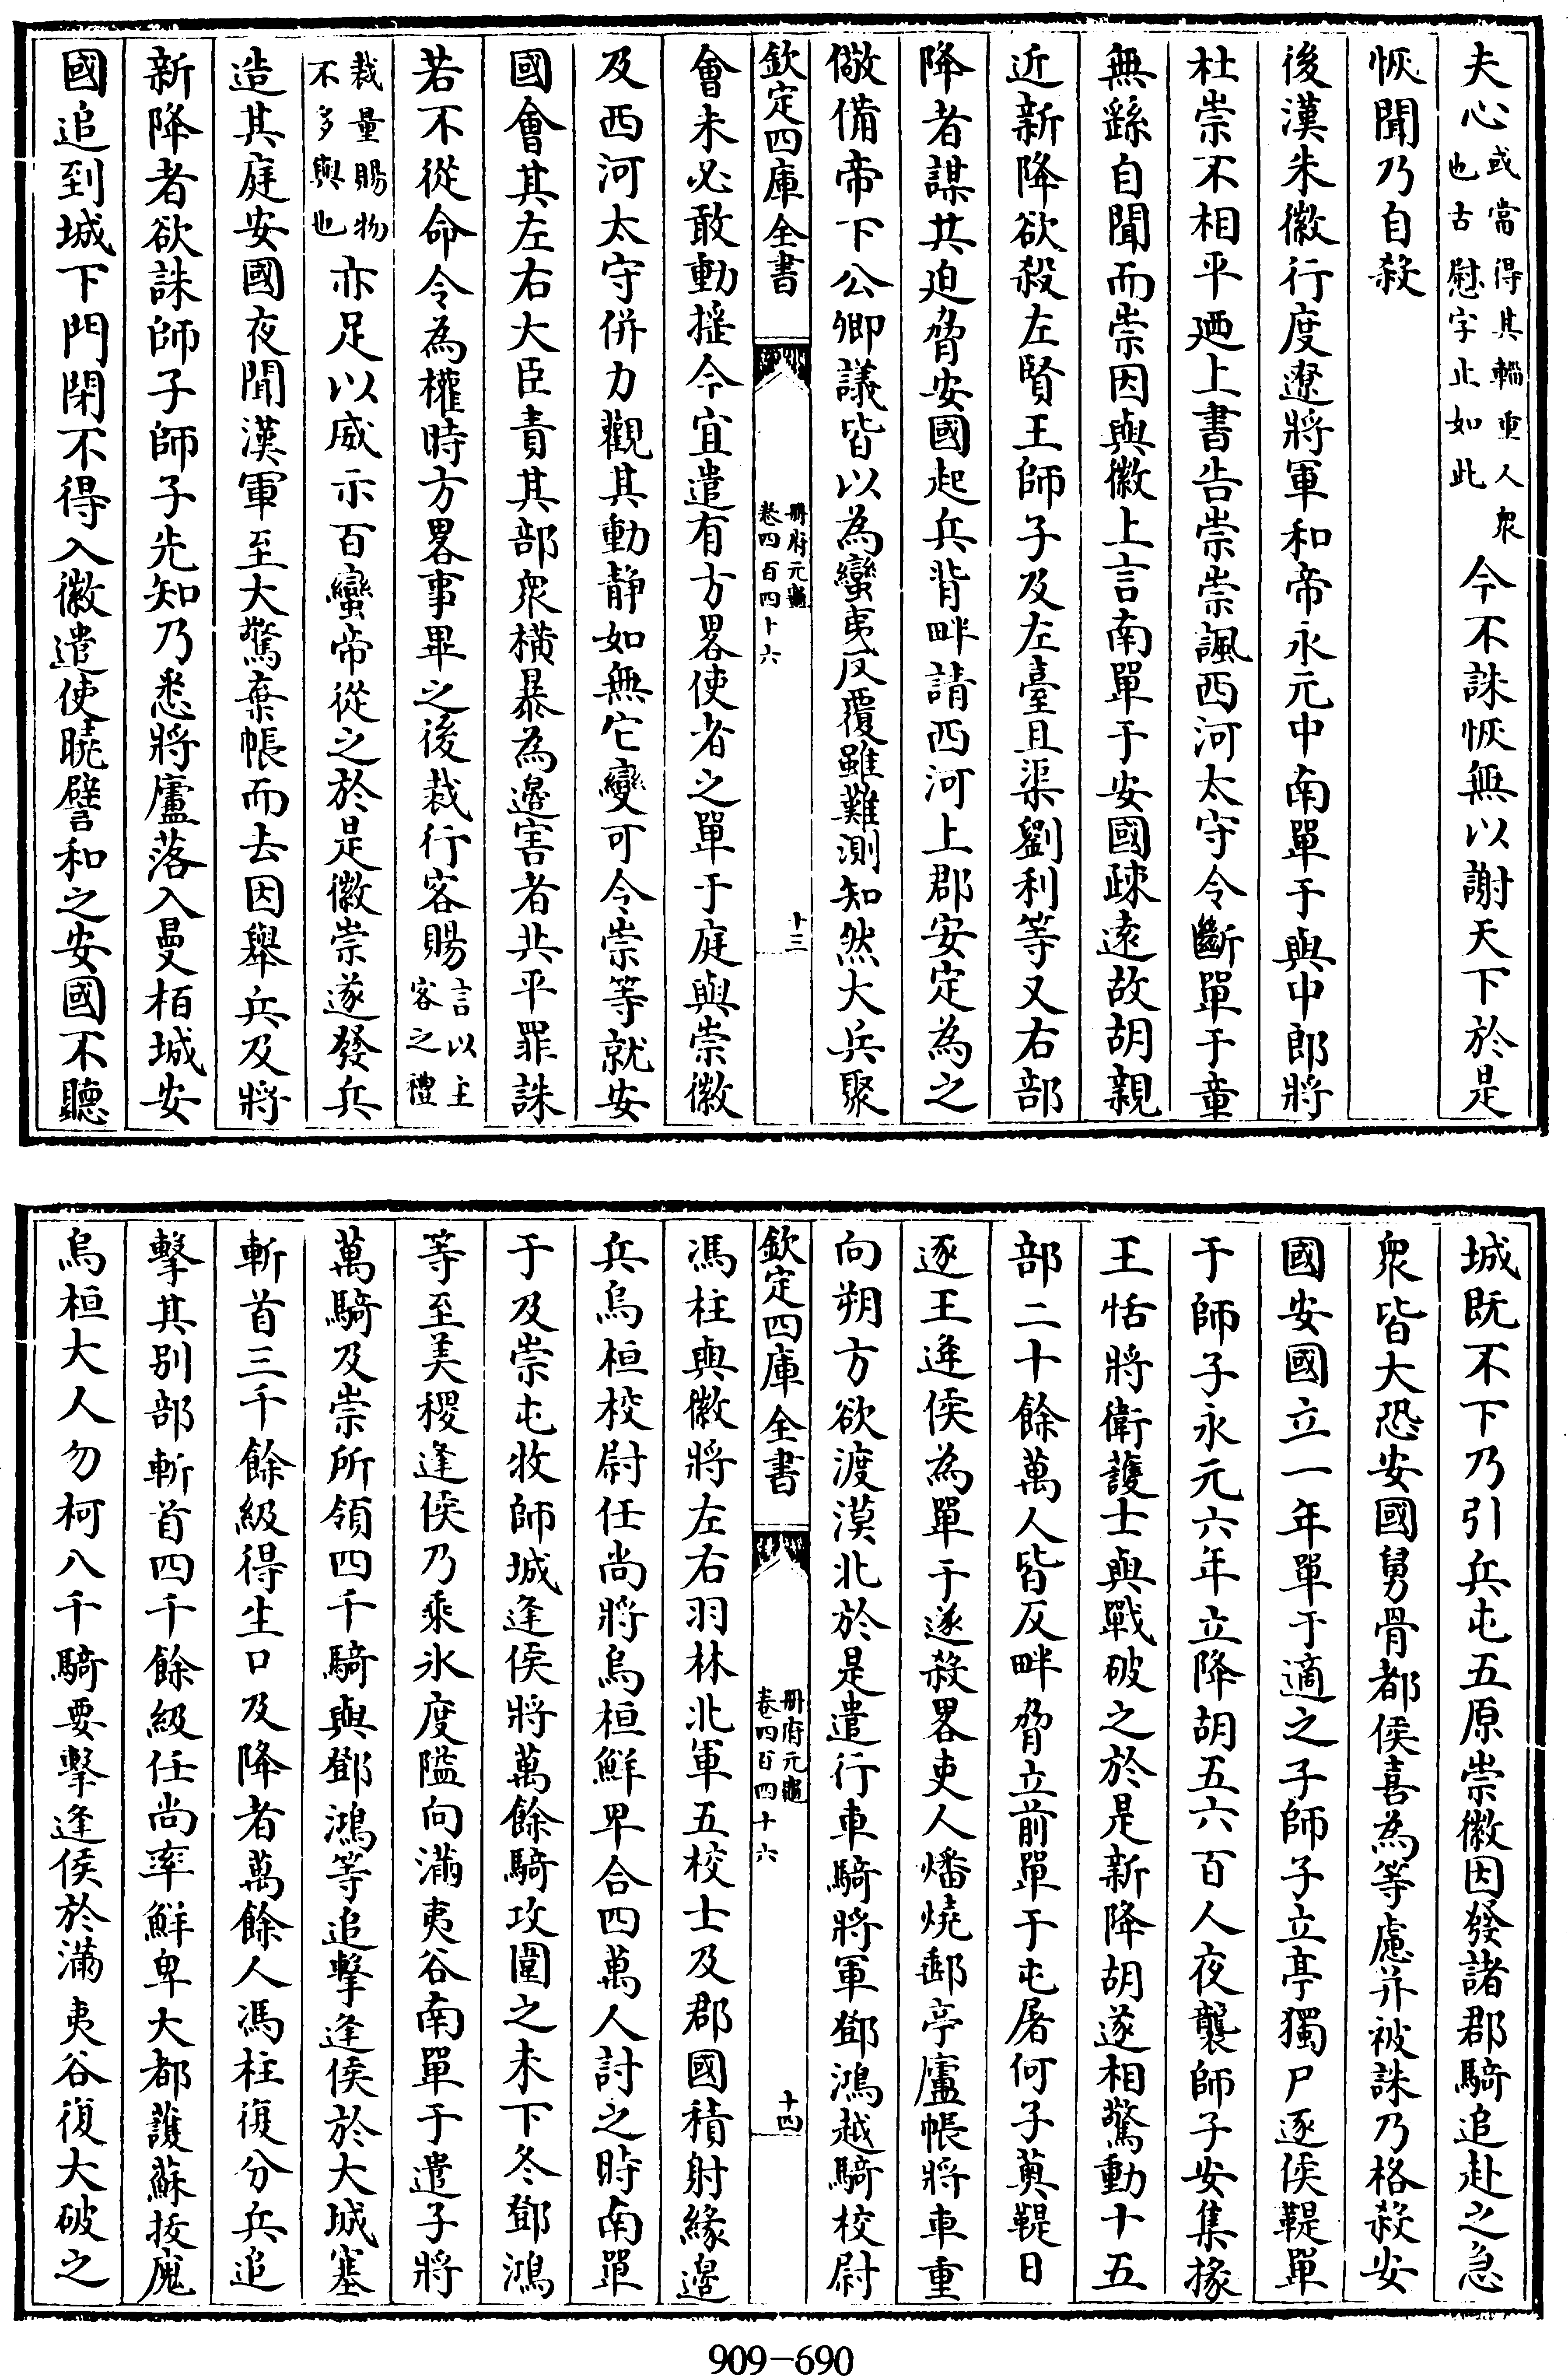 夫心或當得其輜重人衆也古慰字止如此今不誅恢無以謝天下於是
恢聞乃自殺
後漢朱徽行度遼將軍和帝永元中南單于與中郎將
杜崇不相平廼上書告崇崇諷西河太守令斷單于章
無繇自聞而崇因與徽上言南單于安國疎遠故胡親
近新降欲殺左賢王師子及左臺且渠劉利等又右部
降者謀共迫脅安國起兵背畔請西河上郡安定為之
儆備帝下公卿議皆以為蠻夷反覆雖難測知然大兵聚
欽定四庫全書
冊府元龜
卷四百四十六
十三
會未必敢動揺今宜遣有方畧使者之單于庭與崇徽
及西河太守併力觀其動靜如無它變可令崇等就安
國會其左右大臣責其部衆横暴為邉害者共平罪誅
若不從命令為權時方畧事畢之後裁行客賜言以主客之禮
裁量賜物不多與也亦足以威示百蠻帝從之於是徽崇遂發兵
造其庭安國夜聞漢軍至大驚棄帳而去因舉兵及將
新降者欲誅師子師子先知乃悉將廬落入曼栢城安
國追到城下門閉不得入徽遣使曉譬和之安國不聽
城既不下乃引兵屯五原崇徽因發諸郡騎追赴之急
衆皆大恐安國舅骨都侯喜為等慮并被誅乃格殺安
國安國立一年單于適之子師子立亭獨尸逐侯鞮單
于師子永元六年立降胡五六百人夜襲師子安集掾
王恬將衛䕶士與戰破之於是新降胡遂相驚動十五
部二十餘萬人皆反畔脅立前單于屯屠何子薁鞮日
逐王逄侯為單于遂殺畧吏人燔燒郵亭廬帳將車重
向朔方欲渡漠北於是遣行車騎將軍鄧鴻越騎校尉
欽定四庫全書
冊府元龜
卷四百四十六
十四
馮柱與徽將左右羽林北軍五校士及郡國積射緣邉
兵烏桓校尉任尚將烏桓鮮卑合四萬人討之時南單
于及崇屯牧師城逢侯將萬餘騎攻圍之未下冬鄧鴻
等至美稷逢侯乃乘氷度隘向滿夷谷南單于遣子將
萬騎及崇所領四千騎與鄧鴻等追擊逢侯於大城塞
斬首三千餘級得生口及降者萬餘人馮柱復分兵追
擊其別部斬首四千餘級任尚率鮮卑大都護蘇拔廆
烏桓大人勿柯八千騎要擊逢侯於滿夷谷復大破之
909-690